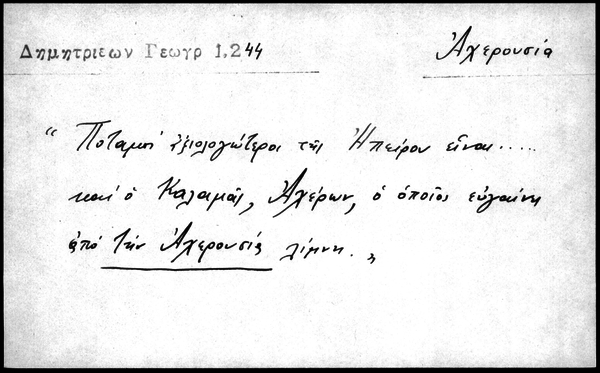 Δημητριεων Γεωγρ 1.244
Ἀχερουσία
“ Ποταμοί ἀξιολογώτεροι τῆς Ἠπείρου εἶναι.....
καί ὁ Καλαμᾶς, Ἀχέρων, ὁ ὁποῖος εὐγαίνη
ἀπό τήν Ἀχερουσία λίμνη. „